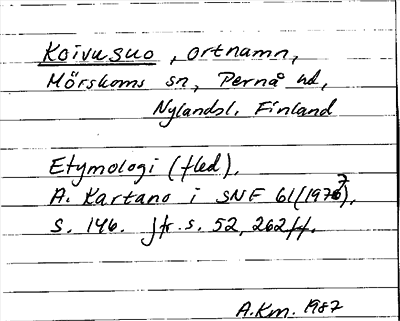 Koivusuo, ortnamn,
Mörskoms sn, Pernå hd,
Nylandsl. Finland
Etymologi (fled).
A. Kartano i SNF 61 (1977),
s. 146. jfr. s. 52, 262 ff.
A.Km. 1987